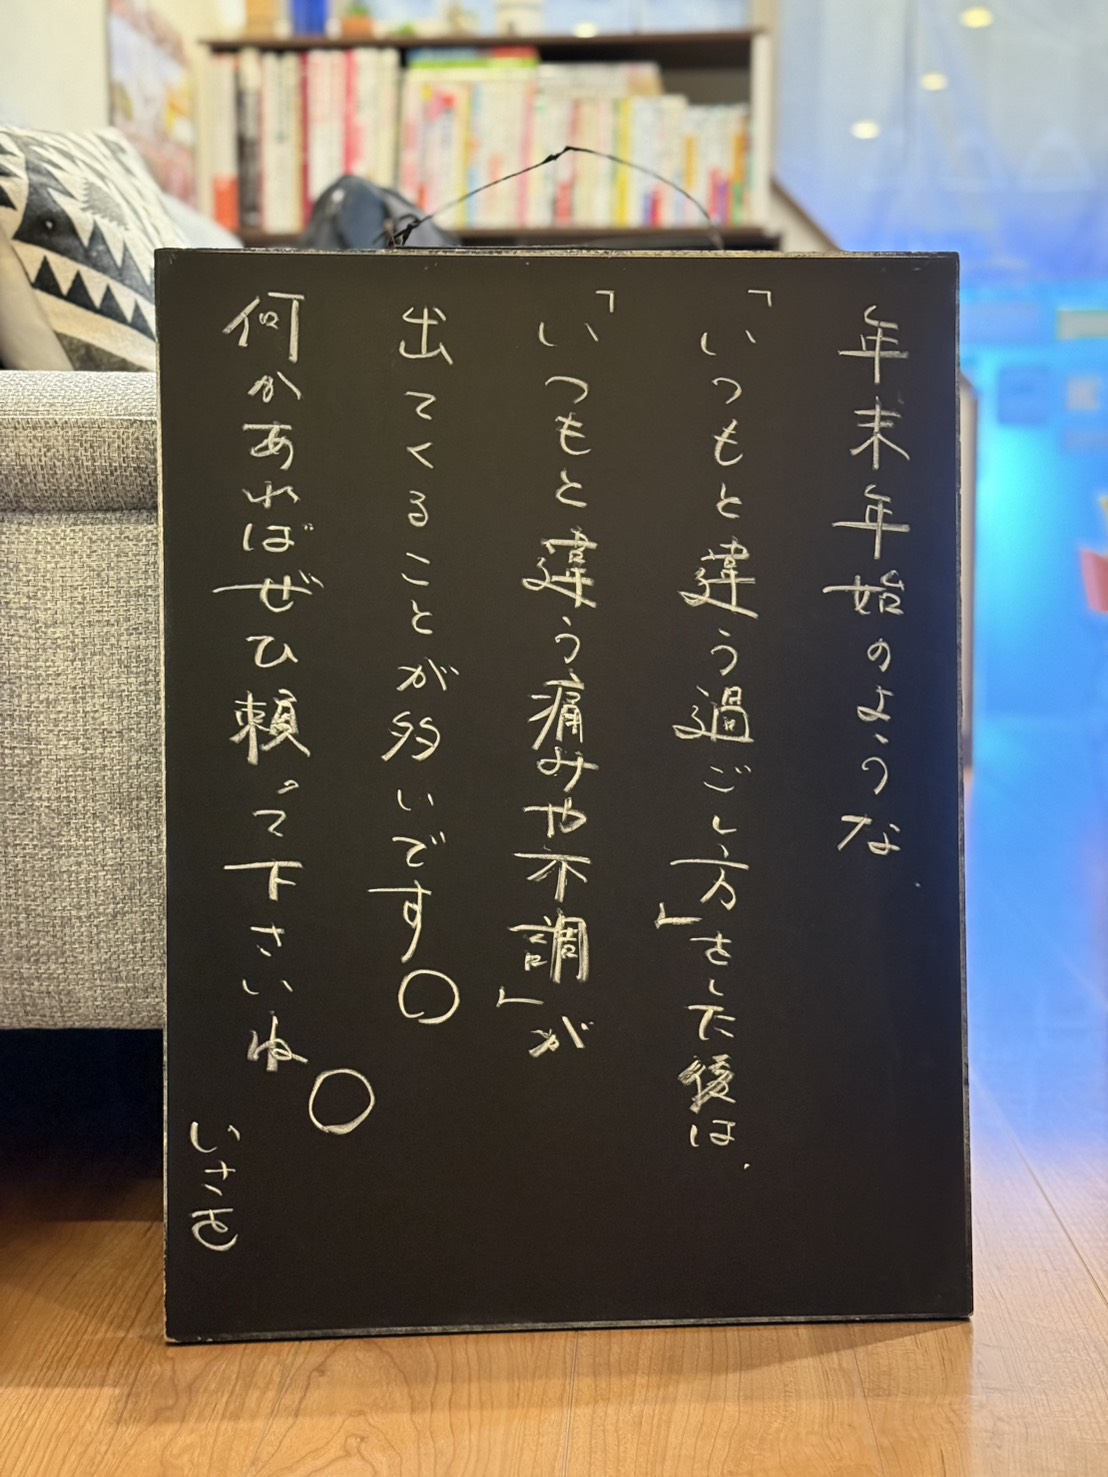 年末年始のような
「いつもと違う過ごし方」をした後は、
「いつもと違う痛みや不調」が
出てくることが多いです。
何かあればぜひ頼って下さいね。
いさを